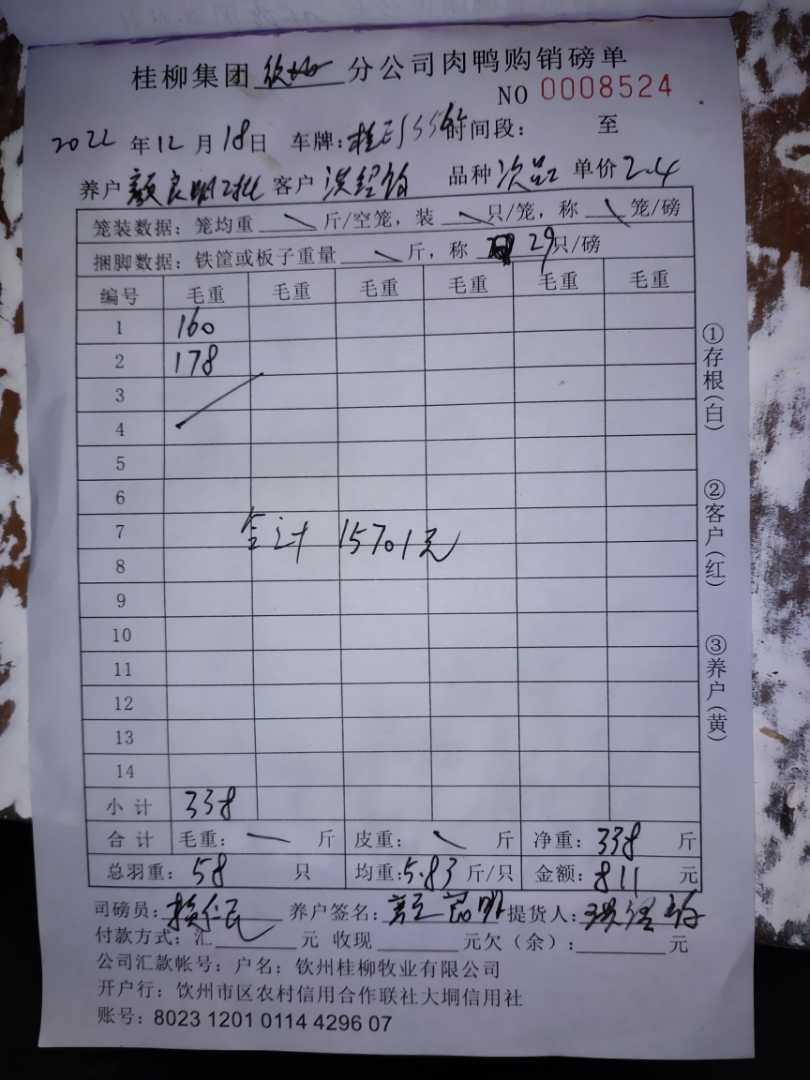 桂柳集团 钦州 分公司肉鸭购销磅单
NO 0008524
2022 年 12 月 18 日 车牌: 时间段: 至
养户 颜良明 客户 单价 2.4 品种 次品
笼装数据: 笼均重 斤/空笼, 装 只/笼, 称 笼/磅
捆脚数据: 铁筐或板子重量 斤, 称 29 只/磅
编号 毛重 毛重 毛重 毛重 毛重 毛重
1 160
2 178
3
4
5
6
7
合计 15701元
8
9
10
11
12
13
14
小计 338
合计 毛重: 斤 皮重: 斤 净重: 338 斤
总羽重: 58 只 均重: 5.83 斤/只 金额: 811 元
司磅员: 养户签名: 提货人:
付款方式: 汇 元 收现 元欠(余): 元
公司汇款帐号: 户名: 钦州桂柳牧业有限公司
开户行: 饮州市区农村信用合作联社大垌信用社
账号: 8023 1201 0114 4296 07
①存根(白)
②客户(红)
③养户(黄)